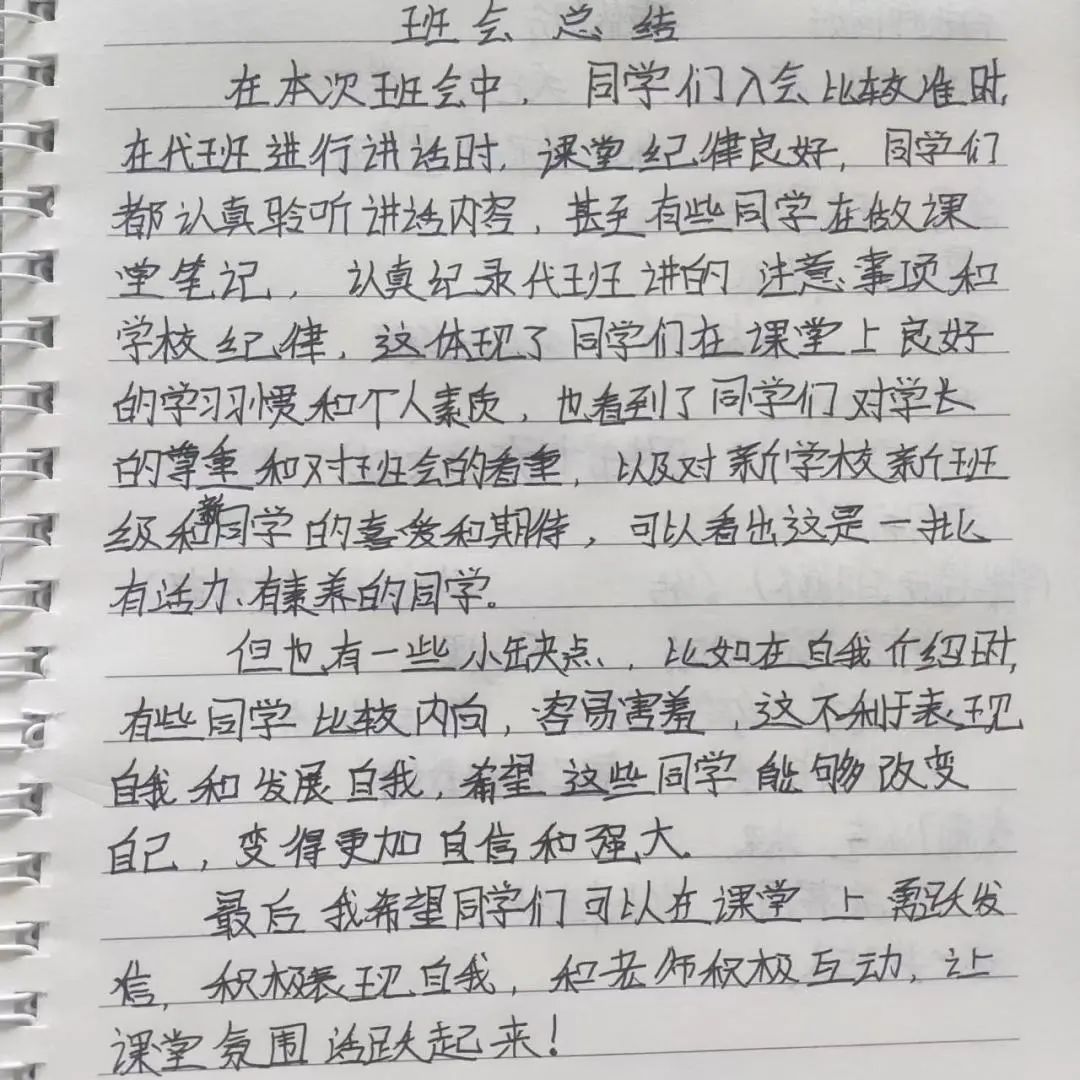 班会总结
在本次班会中，同学们入会比较准时，
在代班进行讲话时，课堂纪律良好，同学们
都认真聆听讲话内容，甚至有些同学在做课
堂笔记，认真纪录代班讲的注意事项和
学校纪律，这体现了同学们在课堂上良好
的学习习惯和个人素质，也看到了同学们对学长
的尊重和对班会的看重，以及对新学校新班
级和新同学的喜爱和期待，可以看出这是一批
有活力、有素养的同学。
但也有一些小缺点，比如在自我介绍时，
有些同学比较内向，容易害羞，这不利于表现
自我和发展自我，希望这些同学能够改变
自己，变得更加自信和强大。
最后我希望同学们可以在课堂上踊跃发
信，积极表现自我，和老师积极互动，让
课堂氛围活跃起来！